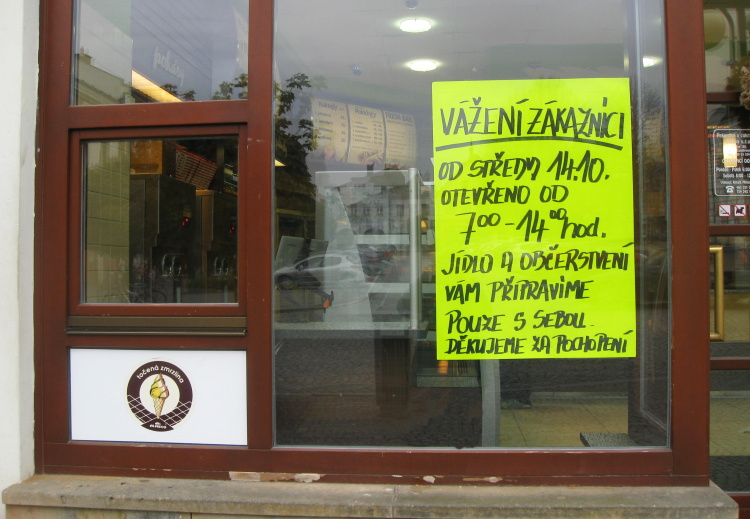 VÁŽENÍ ZÁKAZNÍCI
OD STŘEDY 14.10.
OTEVŘENO OD
7⁰⁰-14⁰⁰hod.
JÍDLO A OBČERSTVENÍ
VÁM PŘIPRAVÍME
POUZE S SEBOU.
DĚKUJEME ZA POCHOPENÍ
točená zmrzlina